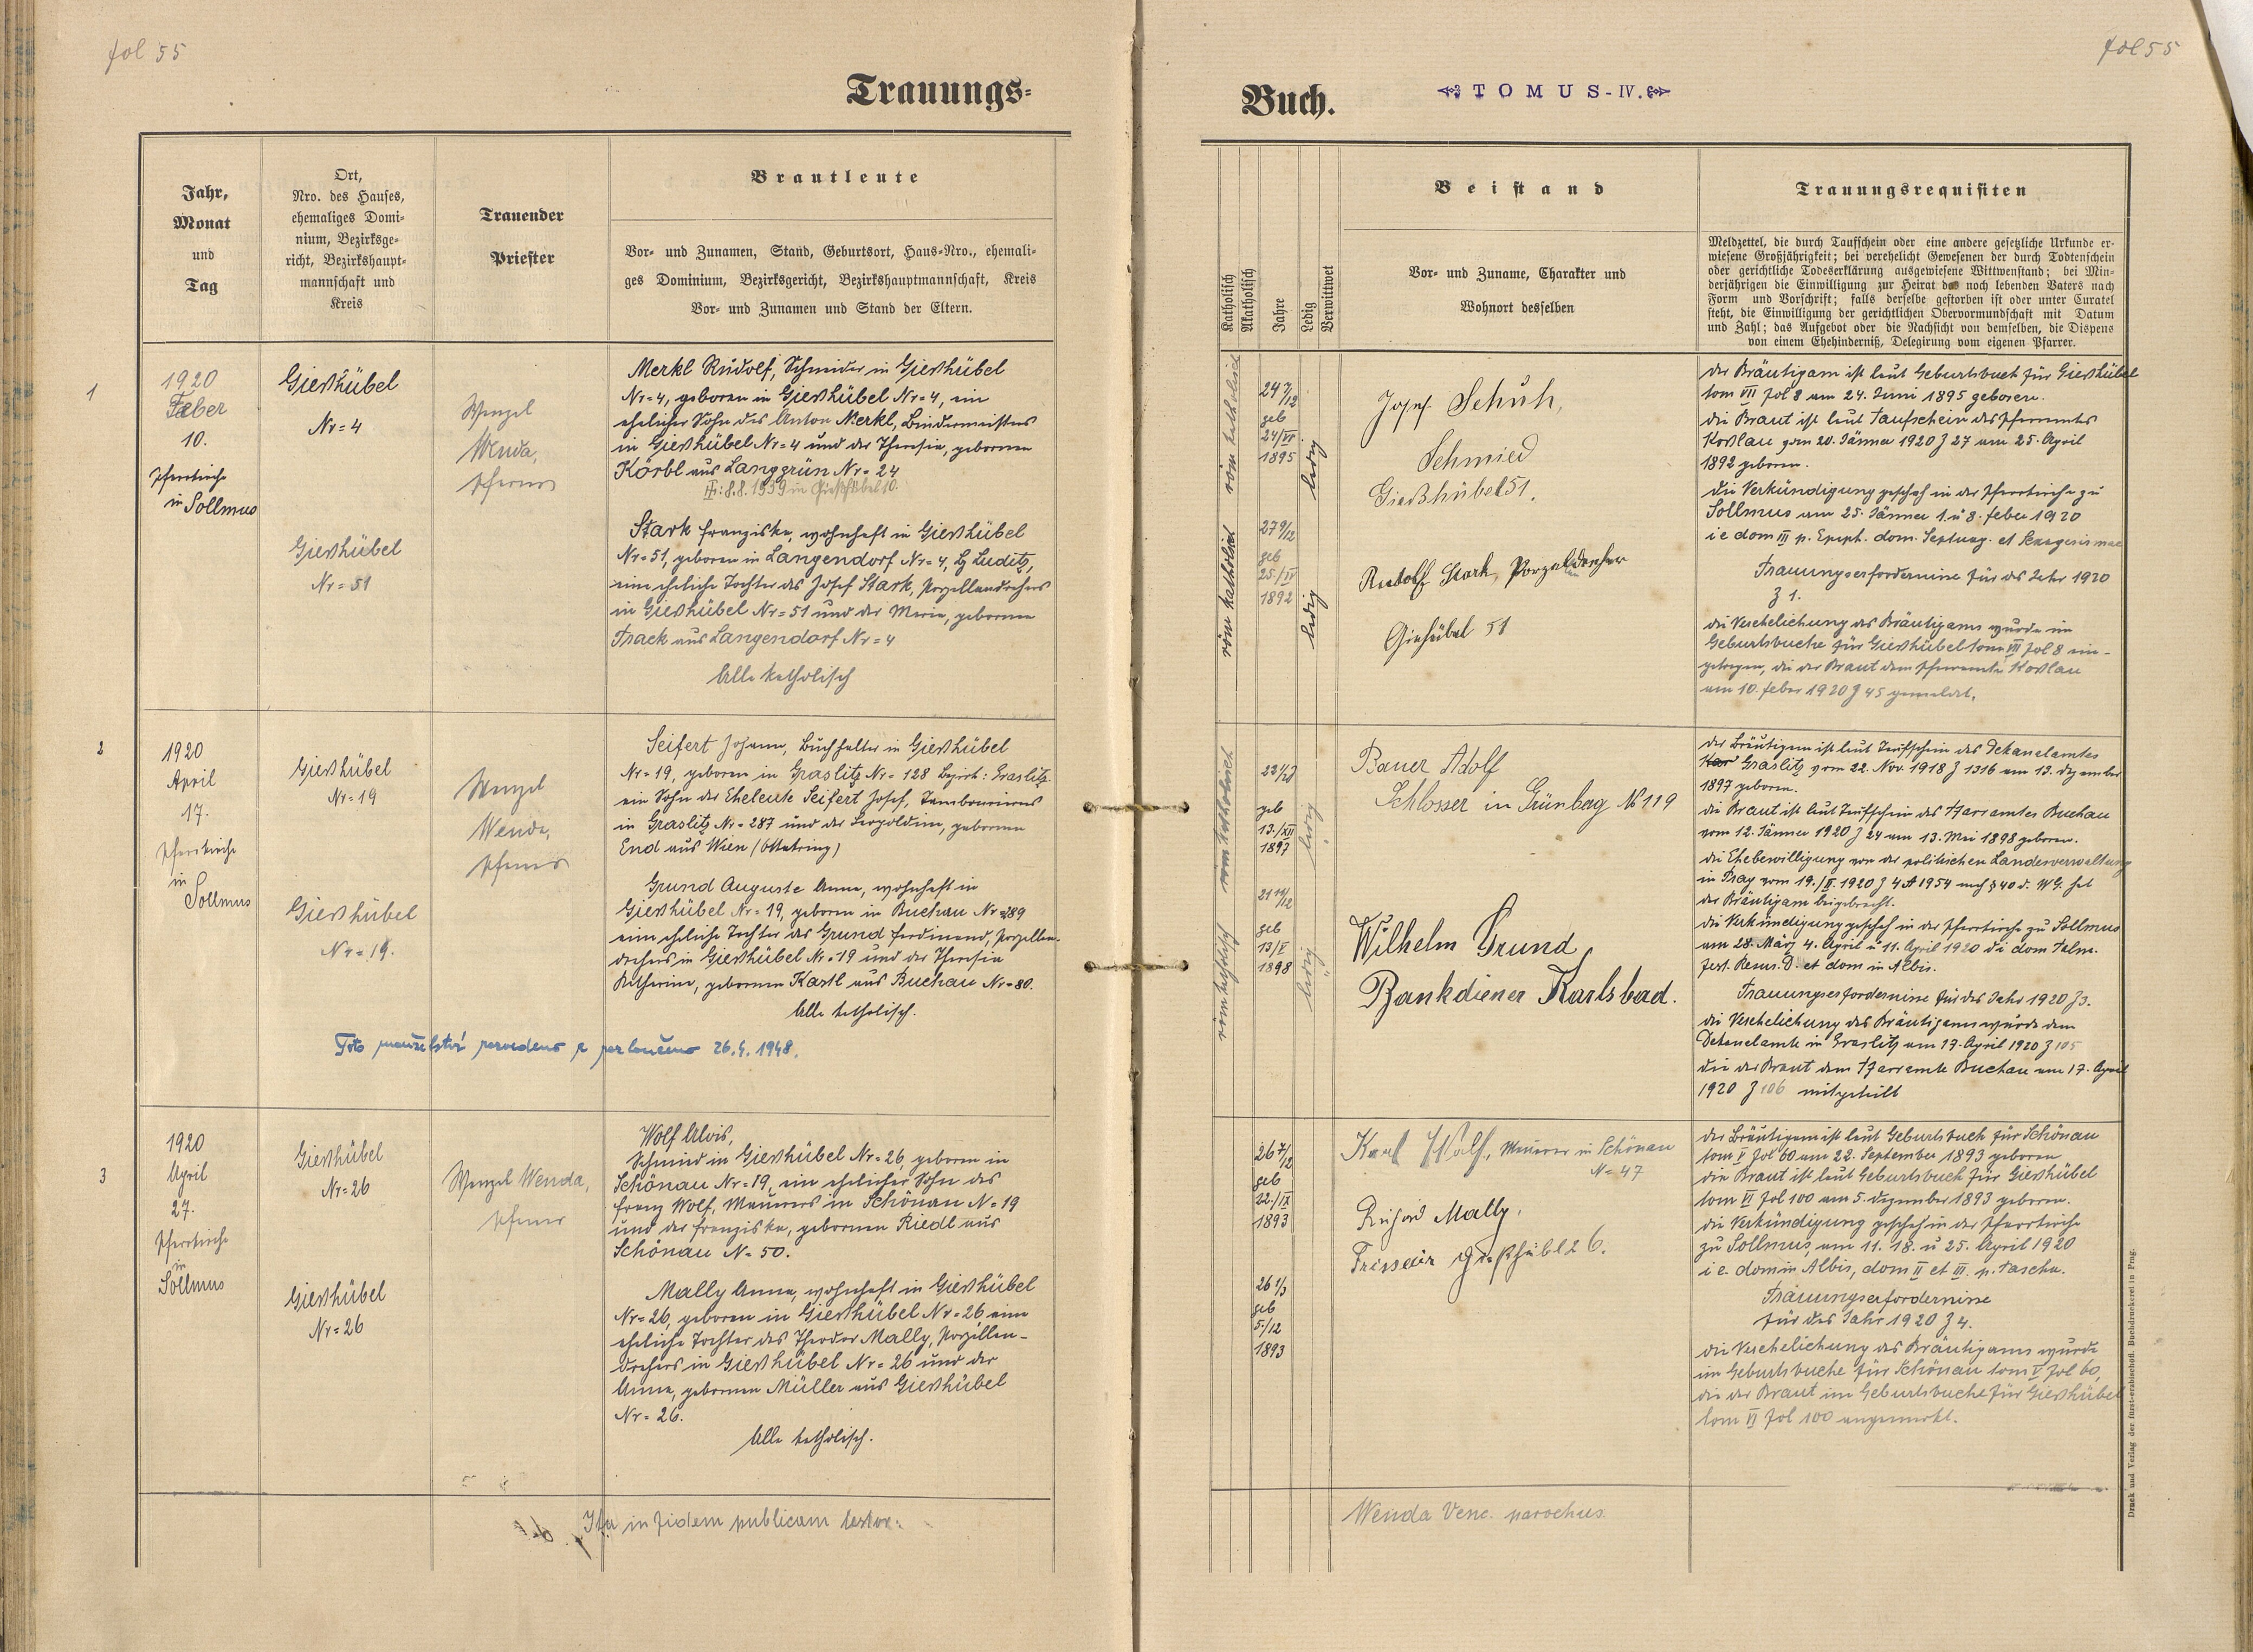 fol 55
Trauungs-
Jahr,
Monat
und
Tag
Ort,
Nro. des Hauses,
ehemaliges Domi-
nium, Bezirksge-
richt, Bezirkshaupt-
mannschaft und
Kreis
Trauender
Priester
Brautleute
Vor- und Zunamen, Stand, Geburtsort, Haus-Nro., ehemali-
ges Dominium, Bezirksgericht, Bezirkshauptmannschaft, Kreis
Vor- und Zunamen und Stand der Eltern.
1
1920
Feber
10.
Pfarrkirche
in Sollmus
Gießhübel
Nr = 4
Gießhübel
Nr = 51
Wenzel
Wenda,
Pfarrer
Merkl Rudolf, Schneider in Gießhübel
Nr = 4, geboren in Gießhübel Nr = 4, ein
ehelicher Sohn des Anton Merkl, Bindermeisters
in Gießhübel Nr = 4 und der Theresia, geborenen
Körbl aus Langgrün Nr = 24
8.8. 1959 in Gießhübel 10.
Stark Franziska, wohnhaft in Gießhübel
Nr = 51, geboren in Langendorf Nr = 4, Bz Luditz,
eine eheliche Tochter des Josef Stark, Porzellandrehers
in Gießhübel Nr = 51 und der Maria, geborenen
Track aus Langendorf Nr = 4
Alle katholisch
2
1920
April
17.
Pfarrkirche
in
Sollmus
Gießhübel
Nr = 19
Gießhübel
Nr = 19.
Wenzel
Wenda,
Pfarrer
Seifert Johann, Buchhalter in Gießhübel
Nr = 19, geboren in Graslitz Nr = 128 Bezirk: Graslitz
ein Sohn der Eheleute Seifert Josef, Tambourierers
in Graslitz Nr = 287 und der Leopoldine, geborenen
End aus Wien (Ottakring)
Grund Auguste Anna, wohnhaft in
Gießhübel Nr = 19, geboren in Buchau Nr = 289
eine eheliche Tochter des Grund Ferdinand, Porzellan-
drehers in Gießhübel Nr = 19 und der Theresia
Katharina, geborenen Kartl aus Buchau Nr = 80.
Alle katholisch.
Toto manželství 26.4. 1948.
3
1920
April
27.
Pfarrkirche
in
Sollmus
Gießhübel
Nr = 26
Gießhübel
Nr = 26
Wenzel Wenda,
Pfarrer
Wolf Alois,
Schmied in Gießhübel Nr = 26, geboren in
Schönau Nr = 19, ein ehelicher Sohn des
Franz Wolf, Maurers in Schönau N = 19
und der Franziska, geborenen Riedl aus
Schönau N = 50.
Mally Anna, wohnhaft in Gießhübel
Nr = 26, geboren in Gießhübel Nr = 26 eine
eheliche Tochter des Theodor Mally, Porzellan-
drehers in Gießhübel Nr = 26 und der
Anna, geborenen Müller aus Gießhübel
Nr = 26.
Alle katholisch.
Ita in fidem publicam testor:
fol 55
Buch.
TOMUS-IV.
Katholisch
Akatholisch
Jahre
Ledig
Verwittwet
Beistand
Vor- und Zuname, Charakter und
Wohnort desselben
Trauungsrequisiten
Meldzettel, die durch Taufschein oder eine andere gesetzliche Urkunde er-
wiesene Großjährigkeit; bei verehelicht Gewesenen der durch Todtenschein
oder gerichtliche Todeserklärung ausgewiesene Wittwenstand; bei Min-
derjährigen die Einwilligung zur Heirat des noch lebenden Vaters nach
Form und Vorschrift; falls derselbe gestorben ist oder unter Curatel
steht, die Einwilligung der gerichtlichen Obervormundschaft mit Datum
und Zahl; das Aufgebot oder die Nachsicht von demselben, die Dispens
von einem Ehehinderniß, Delegirung vom eigenen Pfarrer.
röm katholisch
24 7/12
geb
24/VI
1895
ledig
röm katholisch
27 9/12
geb
25/IV
1892
ledig
Josef Schuh,
Schmied
Gießhübel 51.
Rudolf Stark, Porzelldreher
Gießhübel 51
der Bräutigam ist laut Geburtsbuch für Gießhübel
tom VII fol 8 am 24. Juni 1895 geboren.
die Braut ist laut Taufschein des Pfarramtes
Koßlau vom 20. Jänner 1920 Z 27 am 25. April
1892 geboren.
die Verkündigung geschah in der Pfarrkirche zu
Sollmus am 25. Jänner 1. u 8. Feber 1920
i e dom III p. Epiph. dom. Septuag. et Sexagesimae
Trauungserfordernisse für das Jahr 1920
Z 1.
die Verehelichung des Bräutigams wurde im
Geburtsbuche für Gießhübel tom VII fol 8 ein-
getragen, die der Braut dem Pfarramte Koßlau
am 10. Feber 1920 Z 45 gemeldet.
röm katholisch
geb
13./XII
1897
ledig
röm katholisch
21 11/12
geb
13/V
1898
ledig
Bauer Adolf
Schlosser in Grünberg № 119
Wilhelm Grund
Bankdiener Karlsbad.
der Bräutigam ist laut Taufschein des Dekanalamtes
Graslitz vom 22. Nov. 1918 Z 1316 am 13. Dezember
1897 geboren.
die Braut ist laut Taufschein des Pfarramtes Buchau
vom 12. Jänner 1920 Z 24 am 13. Mai 1898 geboren.
die Ehebewilligung von der politischen Landesverwaltung
in Prag vom 19./II. 1920 Z 4 A 1954 nach § 40 d. WG. hat
der Bräutigam beigebracht.
die Verkündigung geschah in der Pfarrkirche zu Sollmus
am 28. März 4. April u 11. April 1920 di dom Palm.
fest. Resur. D. et dom in Albis.
Trauungserfordernisse für das Jahr 1920 Z 3.
die Verehelichung des Bräutigams wurde dem
Dekanalamte in Graslitz am 17. April 1920 Z 105
die der Braut dem Pfarramte Buchau am 17. April
1920 Z 106 mitgeteilt
26 7/12
geb
22./IX
1893
26 1/3
geb
5./12
1893
Karl Wolf, Maurer in Schönau
N = 47
Richard Mally,
Friseur Gießhübl 26.
der Bräutigam ist laut Geburtsbuch für Schönau
tom V fol 60 am 22. September 1893 geboren
die Braut ist laut Geburtsbuch für Gießhübel
tom VI fol 100 am 5. Dezember 1893 geboren.
die Verkündigung geschah in der Pfarrkirche
zu Sollmus, am 11. 18. u 25. April 1920
i e. dom in Albis, dom II et III. p. Pascha.
Trauungserfordernisse
für das Jahr 1920 Z 4.
die Verehelichung des Bräutigams wurde
im Geburtsbuche für Schönau tom V fol 60,
die der Braut im Geburtsbuche für Gießhübel
tom VI fol 100 angemerkt.
Wenda Venc. parochus.
Druck und Verlag der fürst-erzbischöfl. Buchdruckerei in Prag.